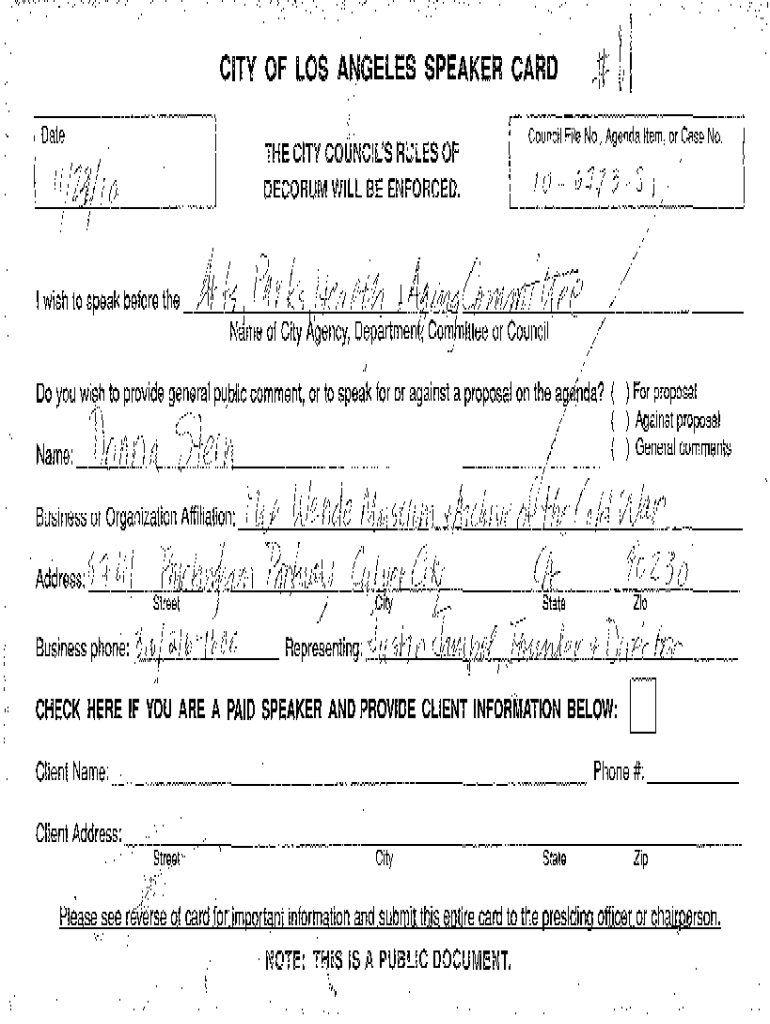 CITY OF LOS ANGELES SPEAKER CARD #11
Date
Council File No., Agenda Item, or Case No.
THE CITY COUNCIL'S RULES OF
DECORUM WILL BE ENFORCED.
I wish to speak before the Arts, Parks, Health & Aging Committee
Name of City Agency, Department, Committee or Council
Do you wish to provide general public comment, or to speak for or against a proposal on the agenda? ( ) For proposal
( ) Against proposal
( ) General comments
Name: Donna Stein
Business or Organization Affiliation: The Wende Museum & Archive of the Cold War
Address: 5741 Buckingham Parkway Culver City CA 90230
Street City State Zip
Business phone: 310/216-1600 Representing: Founder & Director
CHECK HERE IF YOU ARE A PAID SPEAKER AND PROVIDE CLIENT INFORMATION BELOW:
Client Name: Phone #:
Client Address:
Street City State Zip
Please see reverse of card for important information and submit this entire card to the presiding officer or chairperson.
NOTE: THIS IS A PUBLIC DOCUMENT.